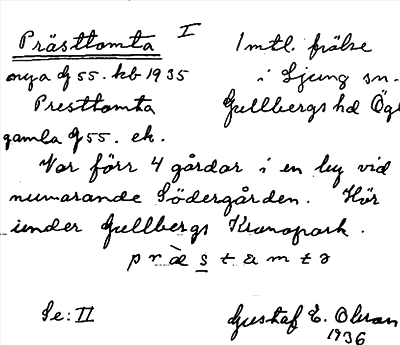 Prästtomta I 1 mtl. frälse
nya J 55. kb 1935 i Ljung sn.
Presttomta Gullbergs hd Ög
gamla J 55. ek.
Var förr 4 gårdar i en by vid
numarande Södergården. Hör
under Gullbergs Kronopark.
præ̀stamta
Se: II Gustaf E.
1936